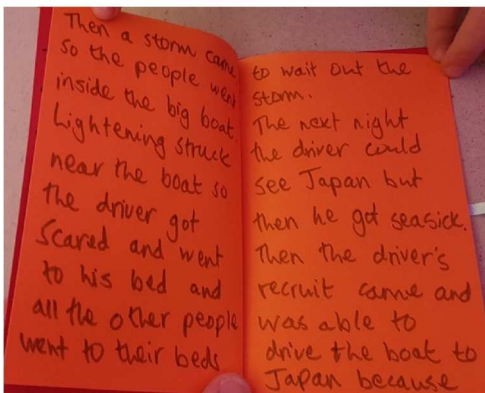 Then a storm came
so the people went
inside the big boat.
Lightening struck
near the boat so
the driver got
scared and went
to his bed and
all the other people
went to their beds
to wait out the
storm.
The next night
the driver could
see Japan but
then he got seasick.
Then the driver's
recruit came and
was able to
drive the boat to
Japan because